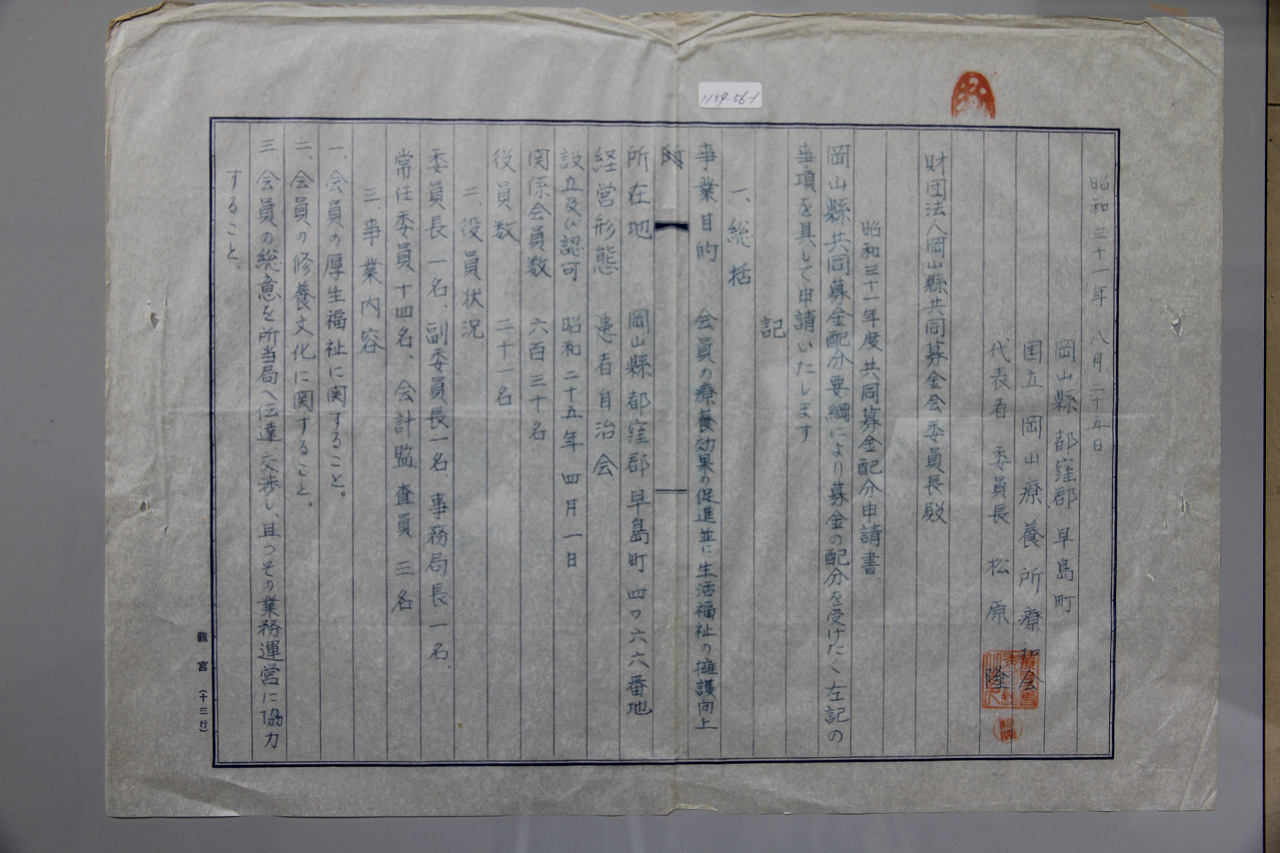 1159-56-1
昭和三十一年 八月二十九日
岡山縣 都窪郡 早島町
国立 岡山療養所療和会
代表者 委員長 松原 隆
財団法人岡山縣共同募金会委員長殿
昭和三十一年度共同募金配分申請書
岡山縣共同募金配分要綱により募金の配分を受けたく左記の
事項を具して申請いたします
記
一、総括
事業目的 会員の療養効果の促進並に生活福祉の擁護向上
所在地 岡山縣都窪郡早島町四〇六六番地
経営形態 患者自治会
設立及び認可 昭和二十五年四月一日
関係会員数 六百三十名
役員数 二十一名
二、役員状況
委員長一名、副委員長一名、事務局長一名、
常任委員十四名、会計監査員三名
三、事業内容
一、会員の厚生福祉に関すること。
二、会員の修養文化に関すること。
三、会員の総意を所当局へ伝達交渉し、且つその業務運営に協力
すること、
龍宮(十三行)